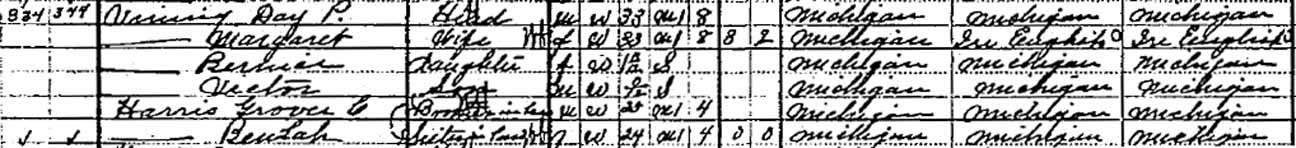 834 377 Vining Day P. Head M W 33 M1 8 Michigan Michigan Michigan
— Margaret Wife F W 33 M1 8 8 2 Michigan Ire English Ire English
— Daughter F W S Michigan Michigan Michigan
— Victor Son M W S Michigan Michigan Michigan
Harris Grover C Brother in law M W M1 4 Michigan Michigan Michigan
— Beulah Sister in law F W 24 M1 4 0 0 Michigan Michigan Michigan